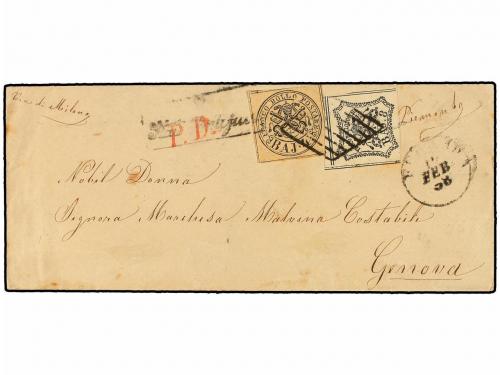 Via di Milano
P. D.
FRANCO BOLLO POSTALE
BAJ
BAJ 8
Piemonte
FEB
56
Nobil Donna
Signora Marchesa Malvina Costabili
Genova